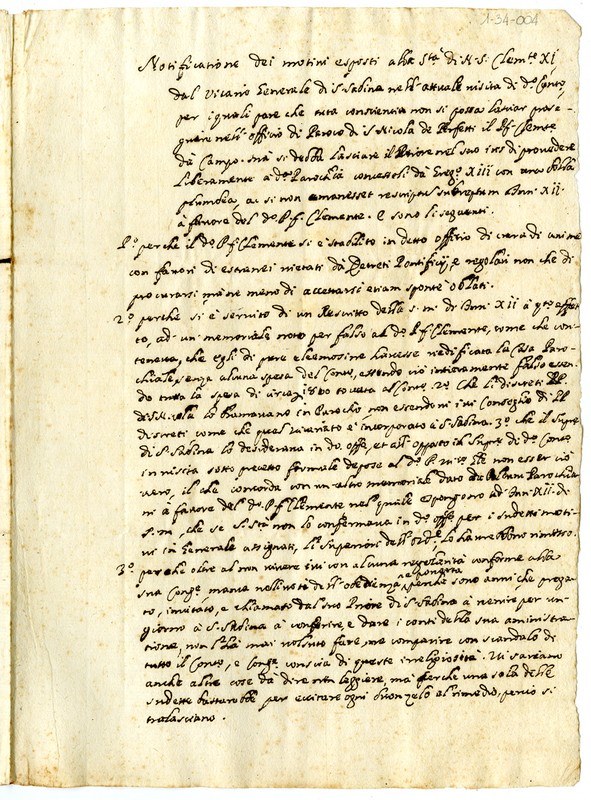 1-34-004
Notificatione dei motivi esposti alla Sta di N. S. Clemte XI
dal Vicario Generale di S. Sabina nell' attuale visita di do Conto,
per i quali pare che tuta conscientia non si possa lasciar prose-
guire nell' officio di Paroco di S. Nicola de Perfetti il P. f. Clemte
da Campo. mà si debba lasciare il Priore nel suo ius di provedere
liberamente à da Parochia concessoli da Greg. XIII con una bolla
plumbea, ac si non emanesset rescriptus Inn. XII.
à favore del do P. f. Clemente. E sono li seguenti.
Po. perche il do P. f. Clemente si è stabilito in detto offitio di cura di anime
con favori di esternei vietati dà Decreti Pontificij, e regolari non che di
procurarsi mà ne meno di accettarsi etiam sponte oblati.
2o. perche si è servito di un Rescritto della s. m. di Inn. XII à effet-
to, ad un memoriale noto per falso al do P. f. Clemente, come che con-
teneva, che egli di pure eleemosine havesse riedificata la Casa Paro-
chiale senza alcuna spesa del Conto, essendo ciò intieramente falso essen-
do tutta la spesa di circa toccata al 2o. che li discreti PP.
di S. Nicola lo bramavano in Parocho non essendovi ivi Consiglio di PP.
discreti come che quel Vicariato è incorporato à S. Sabina. 3o. che il Supre
di S. Sabina lo desiderava in do. offo, et all' opposto il Supre di do Conto
in visita sotto precetto formale depose al do P. Vico Gle non esser ciò
vero, il che concorda con un altro memoriale dato da Parochia-
ni à favore del do P. f. Clemente nel quale espongono ad Inn. XII. di
s. m., che se S. Sta non lo confermava in do offo per i sudetti moti-
vi in Generale assignati, li Superiori dell' ordе lo haverebbono rimosso.
3o. perche oltre al non vivere ivi con alcuna regolarità conforme alla
sua Conge manca nell' obedienza, e povertà perche sono anni che prega-
to, invitato, e chiamato dal suo Priore di S. Sabina à venire per un
giorno à S. Sabina à conferire, e dare i conti della sua aministra-
tione, non l'hà mai voluto fare, ne comparire con scandalo di
tutto il Conto, e Conge conscia di queste irreligiosità. Vi sareano
anche altre cose da dire non leggiere, mà perche una sola delle
sudette bastarebbe per eccitare ogni buon zelo al rimedio, perciò si
tralasciano.